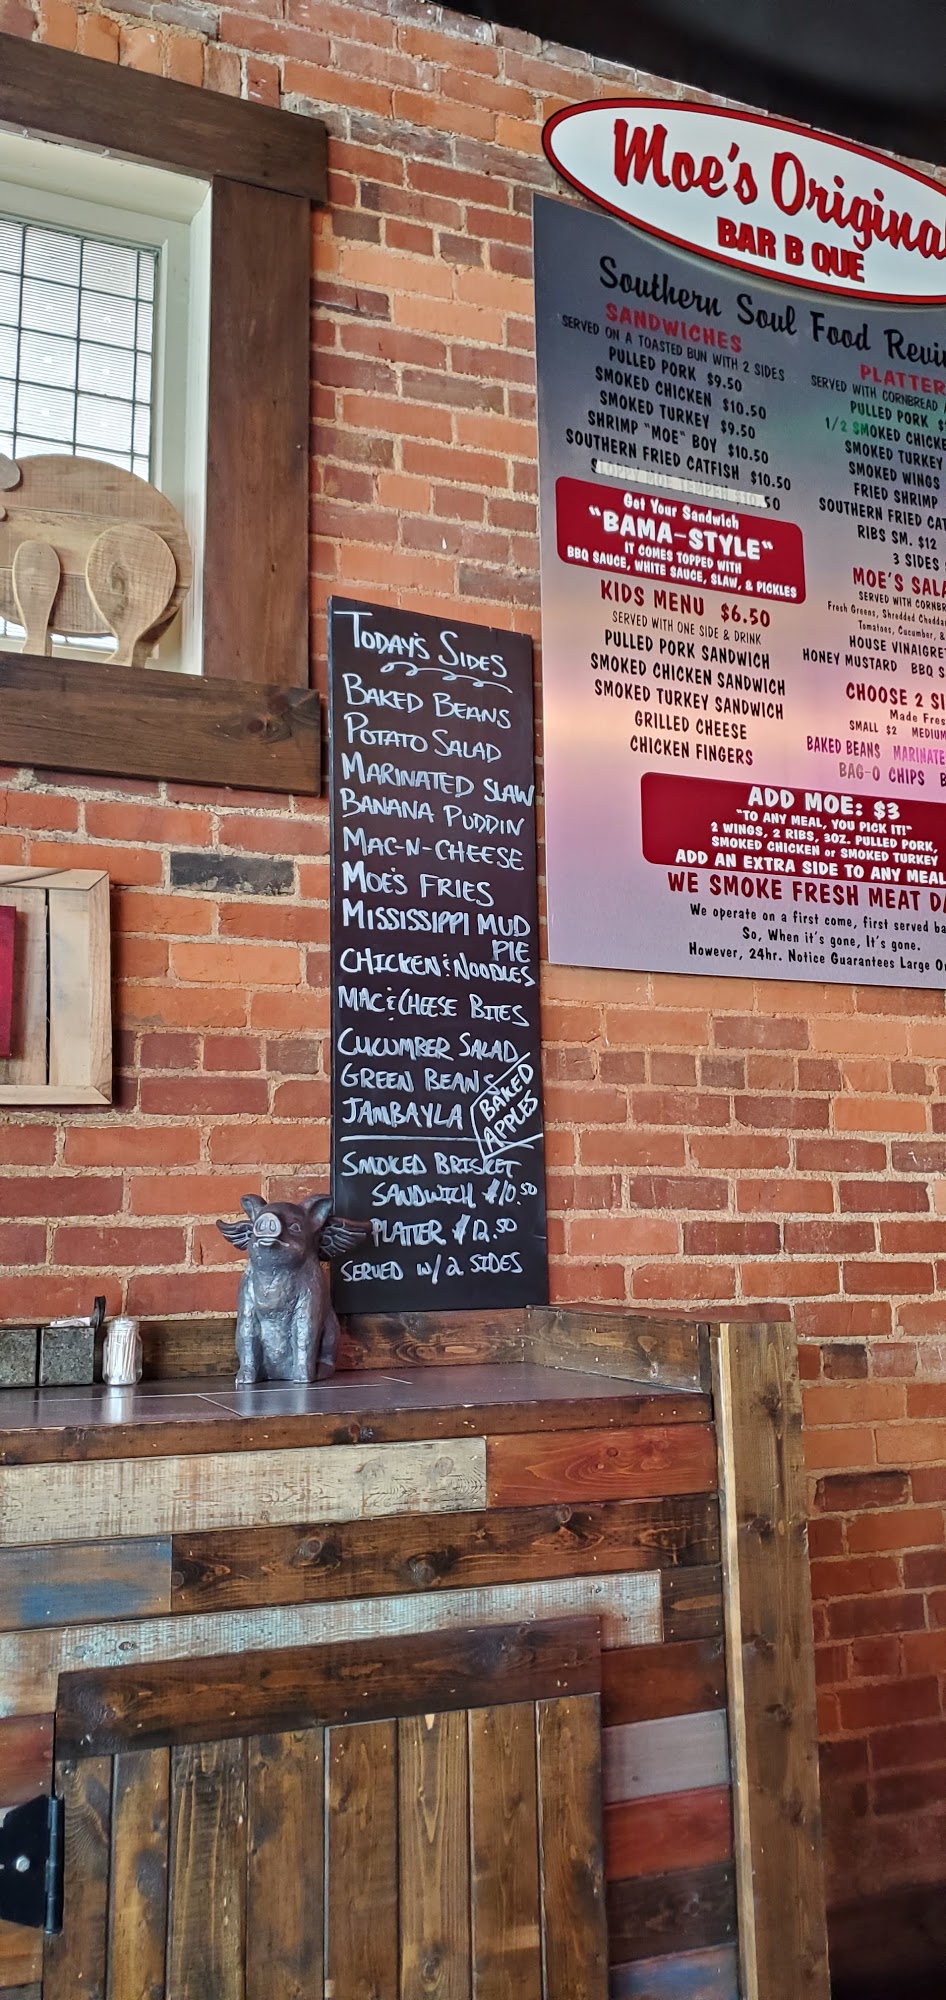 Moe's Original
BAR B QUE
Southern Soul Food
SANDWICHES
SERVED ON A TOASTED BUN WITH 2 SIDES
PULLED PORK $9.50
SMOKED CHICKEN $10.50
SMOKED TURKEY $9.50
SHRIMP "MOE" BOY $10.50
SOUTHERN FRIED CATFISH $10.50
Get Your Sandwich
"BAMA-STYLE"
IT COMES TOPPED WITH
BBQ SAUCE, WHITE SAUCE, SLAW, & PICKLES
KIDS MENU $6.50
SERVED WITH ONE SIDE & DRINK
PULLED PORK SANDWICH
SMOKED CHICKEN SANDWICH
SMOKED TURKEY SANDWICH
GRILLED CHEESE
CHICKEN FINGERS
PLATTER
SERVED WITH CORNBREAD
PULLED PORK
1/2 SMOKED CHICKE
SMOKED TURKEY
SMOKED WINGS
FRIED SHRIMP
SOUTHERN FRIED CAT
RIBS SM. $12
3 SIDES
MOE'S SALA
SERVED WITH CORNBR
Fresh Greens, Shredded Chedda
Tomatoes, Cucumber, &
HOUSE VINAIGRE
HONEY MUSTARD BBQ S
CHOOSE 2 SI
Made Fres
SMALL $2 MEDIUM
BAKED BEANS MARINATE
BAG-O CHIPS
ADD MOE: $3
"TO ANY MEAL, YOU PICK IT!"
2 WINGS, 2 RIBS, 3OZ. PULLED PORK,
SMOKED CHICKEN or SMOKED TURKEY
ADD AN EXTRA SIDE TO ANY MEAL
WE SMOKE FRESH MEAT DA
We operate on a first come, first served ba
So, When it's gone, It's gone.
However, 24hr. Notice Guarantees Large O
TODAY'S SIDES
BAKED BEANS
POTATO SALAD
MARINATED SLAW
BANANA PUDDIN
MAC-N-CHEESE
MOE'S FRIES
MISSISSIPPI MUD
PIE
CHICKEN & NOODLES
MAC & CHEESE BITES
CUCUMBER SALAD
GREEN BEANS
JAMBAYLA
BAKED
APPLES
SMOKED BRISKET
SANDWICH $10.50
PLATTER $12.50
SERVED W/2 SIDES